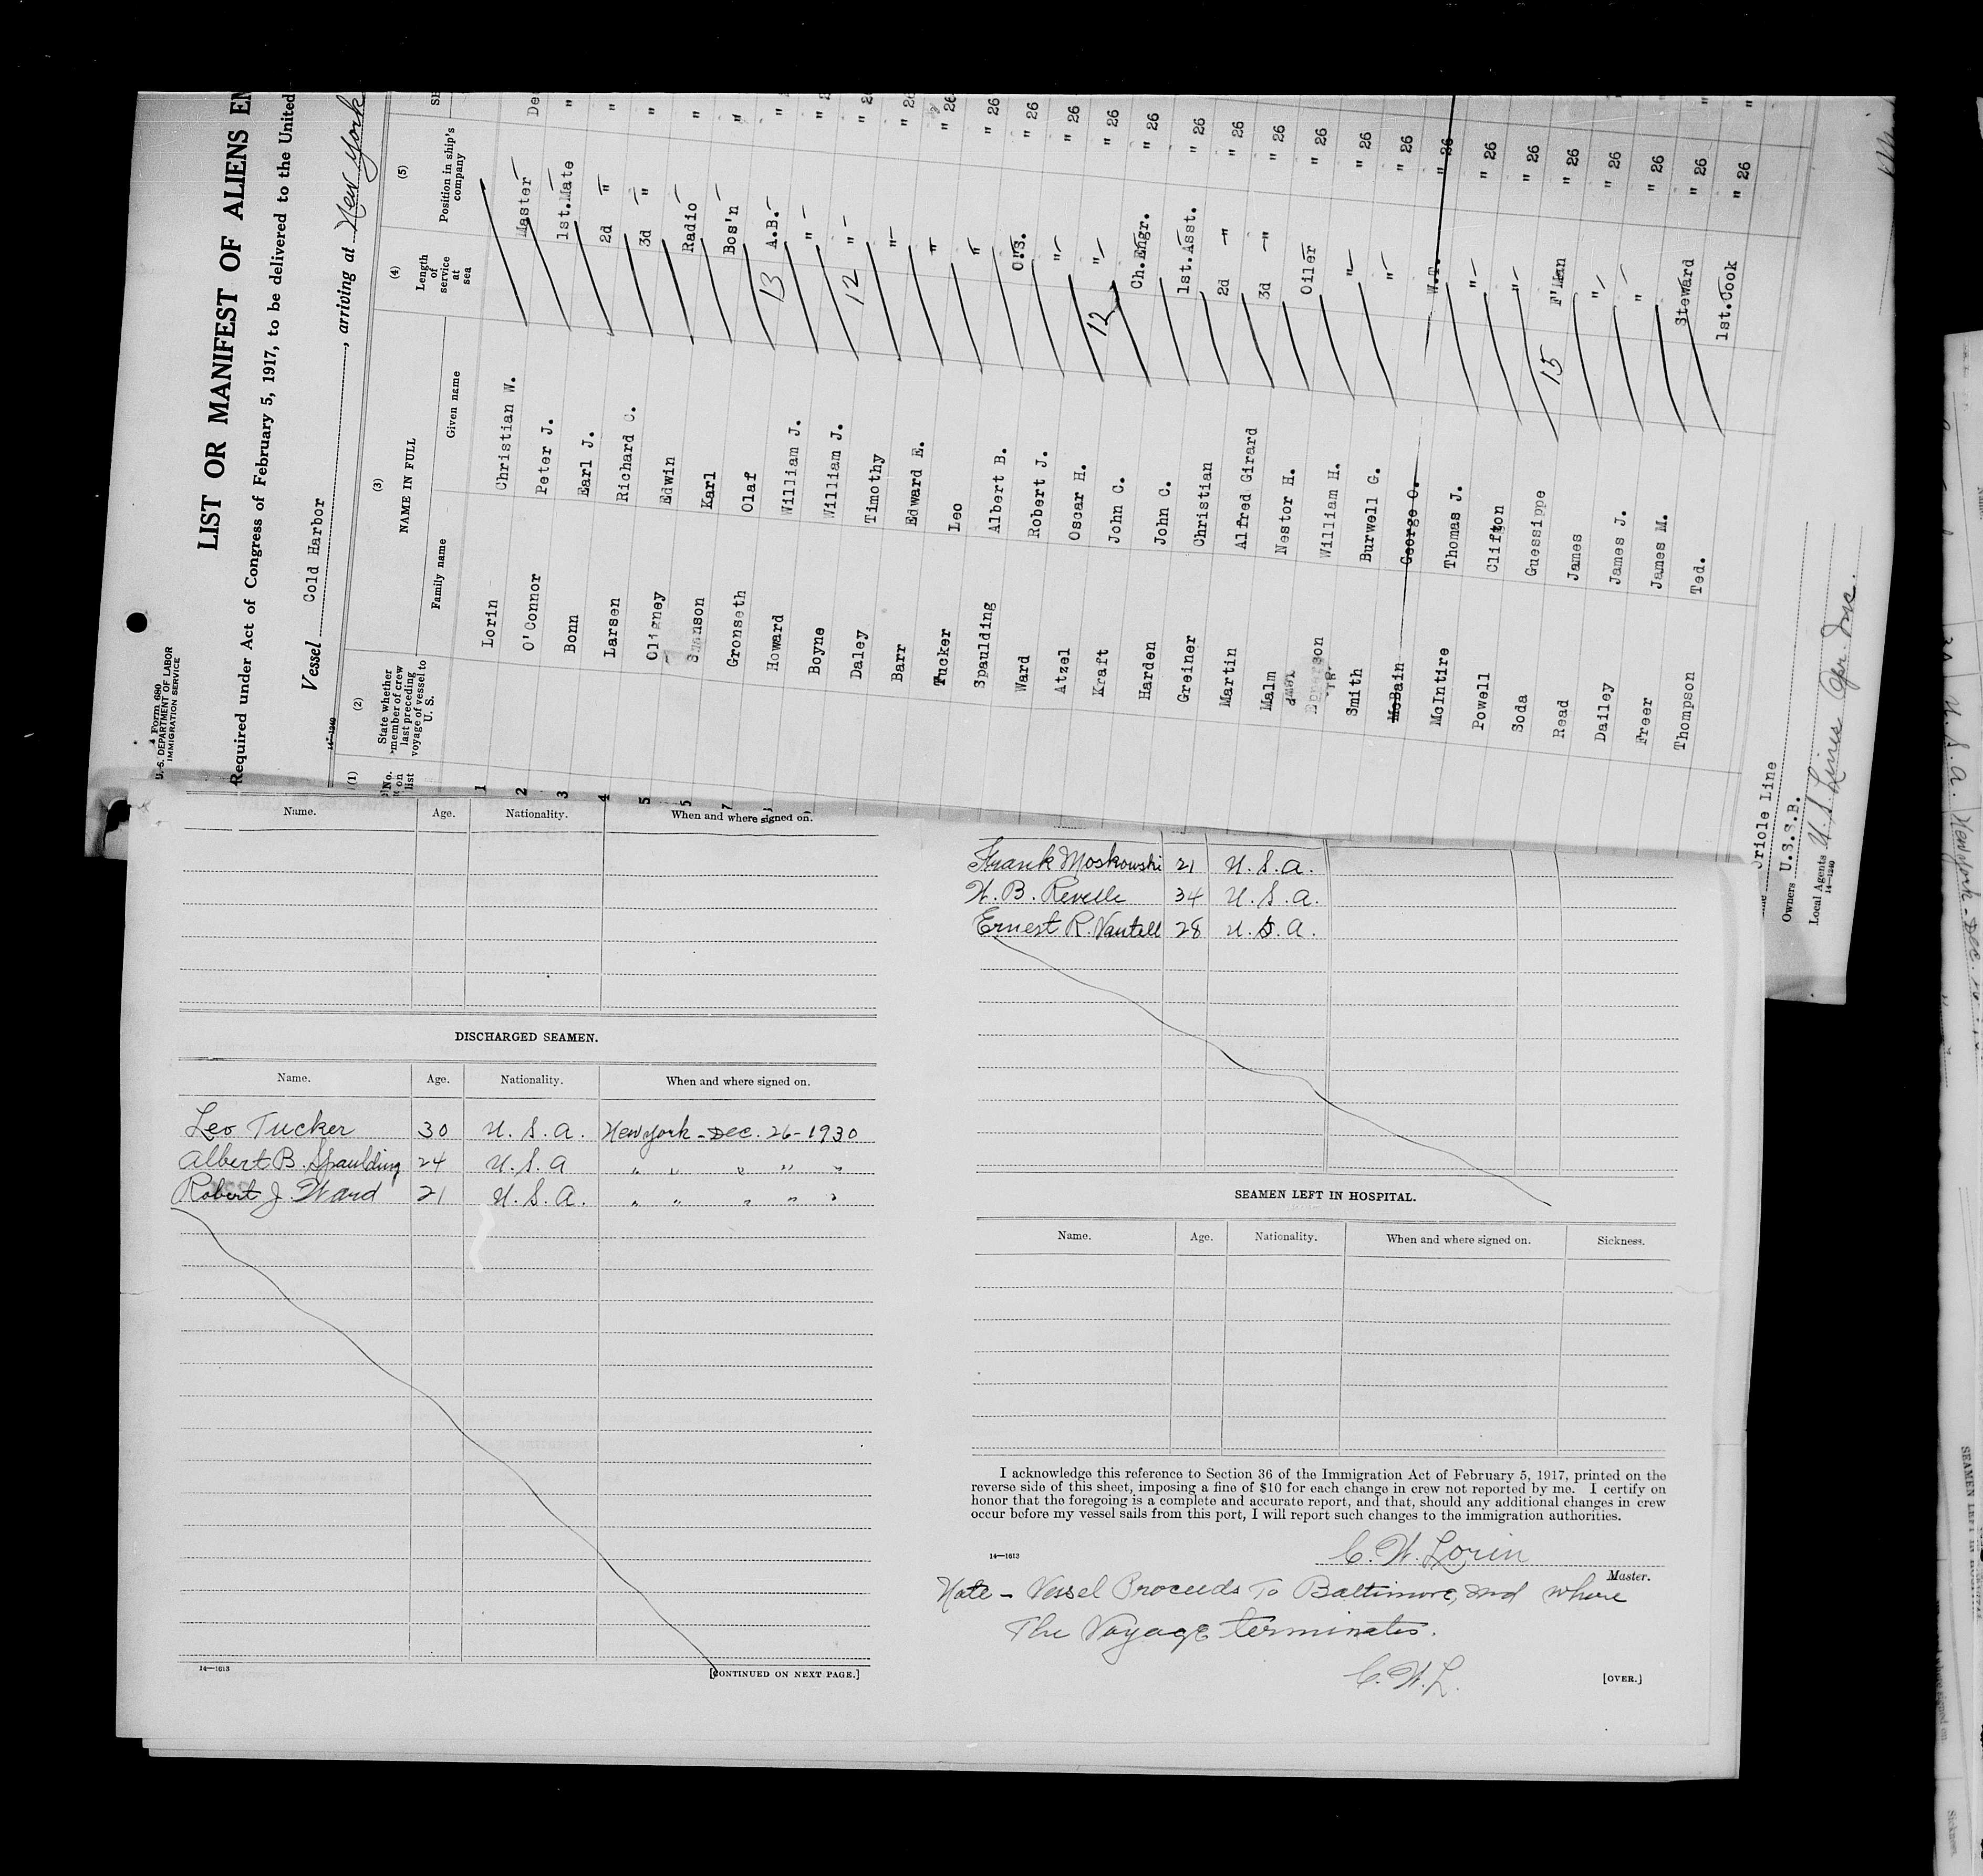 4 Form 680
U. S. DEPARTMENT OF LABOR
IMMIGRATION SERVICE
LIST OR MANIFEST OF ALIENS EM
Required under Act of Congress of February 5, 1917, to be delivered to the United
Vessel Cold Harbor, arriving at New York
14—1240
(1) (2) (3) (4) (5)
No. on list
State whether member of crew last preceding voyage of vessel to U. S.
NAME IN FULL
Family name Given name
Length of service at sea
Position in ship's company
1 Lorin Christian W. Master De
2 O'Connor Peter J. 1st.Mate "
3 Bonn Earl J. 2d " "
4 Larsen Richard C. 3d " "
5 Cligney Edwin Radio "
6 Swanson Karl Bos'n "
7 Gronseth Olaf 13 A.B. "
Howard William J. " "
Boyne William J. 12 " "
Daley Timothy " " 26
Barr Edward E. " " 26
Tucker Leo " " 26
Spaulding Albert B. O.S. " 26
Ward Robert J. " " 26
Atzel Oscar H. 12 " " 26
Kraft John C. Ch.Engr. " 26
Harden John C. 1st.Asst. " 26
Greiner Christian 2d -" " 26
Martin Alfred Girard 3d -" " 26
Malm Nestor H. Oiler " 26
William H. " " 26
Smith Burwell G. " " 26
McBain George O. W.T. " 26
McIntire Thomas J. " " 26
Powell Clifton " " 26
Soda Guessippe 15 F'Man " 26
Read James " " 26
Dailey James J. " " 26
Freer James M. Steward " 26
Thompson Ted. 1st.Cook " 26
Oriole Line
Owners U.S.S.B.
Local Agents U.S. Lines Opr. Inc.
14—1240
Name. Age. Nationality. When and where signed on.
DISCHARGED SEAMEN.
Name. Age. Nationality. When and where signed on.
Leo Tucker 30 U. S. A. New York - Dec. 26 - 1930
Albert B. Spaulding 24 U. S. A " " " " "
Robert J. Ward 21 U. S. A. " " " " "
14—1613
[CONTINUED ON NEXT PAGE.]
Frank Moskowski 21 U. S. A.
H. B. Revelle 34 U. S. A.
Ernest R. Vantell 28 U. S. A.
SEAMEN LEFT IN HOSPITAL.
Name. Age. Nationality. When and where signed on. Sickness.
I acknowledge this reference to Section 36 of the Immigration Act of February 5, 1917, printed on the
reverse side of this sheet, imposing a fine of $10 for each change in crew not reported by me. I certify on
honor that the foregoing is a complete and accurate report, and that, should any additional changes in crew
occur before my vessel sails from this port, I will report such changes to the immigration authorities.
14—1613
C. W. Lorin
Master.
Note - Vessel Proceeds To Baltimore, Md where
The Voyage terminates.
C. W. L.
[OVER.]